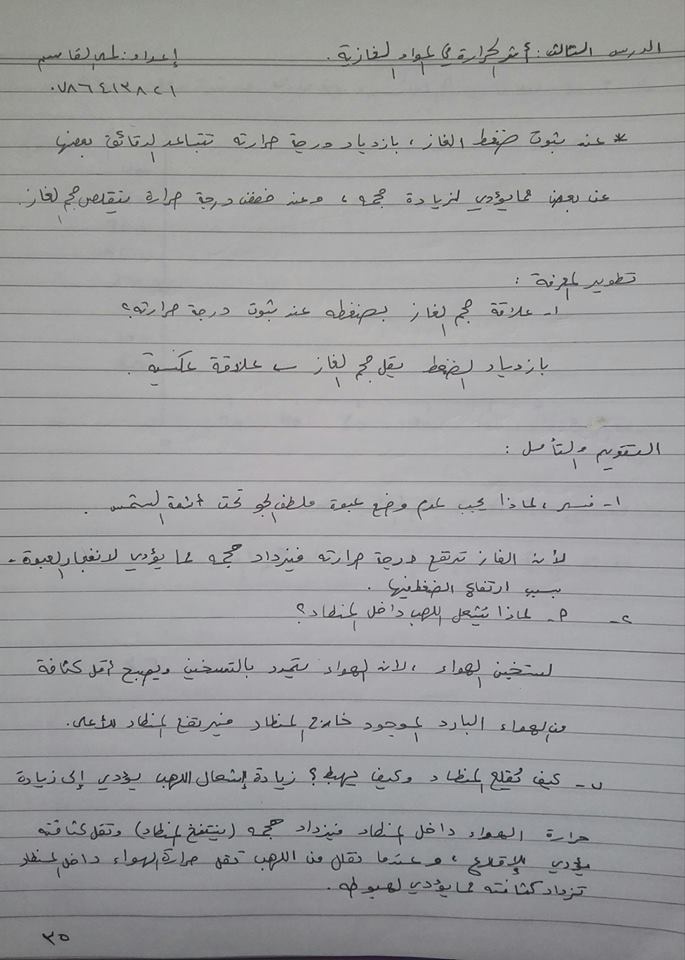 الدرس الثالث: أثر الحرارة في المواد الغازية. إعداد: لمى القاسم
٠٧٨٦٤١٣٨٢١
* عند ثبوت ضغط الغاز، بازدياد درجة حرارته تتباعد الدقائق بعضها
عن بعض مما يؤدي لزيادة حجمه، وعند خفض درجة حرارة يتقلص حجم الغاز.
تطوير المعرفة:
١- علاقة حجم الغاز بضغطه عند ثبوت درجة حرارته؟
بازدياد الضغط يقل حجم الغاز ← علاقة عكسية.
التقويم والتأمل:
١- فسر، لماذا يجب عدم وضع عبوة ملطف الجو تحت أشعة الشمس.
لأن الغاز ترتفع درجة حرارته فيزداد حجمه مما يؤدي لانفجار العبوة -
بسبب ارتفاع الضغط فيها.
٢- P- لماذا يُشعل اللهب داخل المنطاد؟
لتسخين الهواء، لأن الهواء يتمدد بالتسخين ويصبح أقل كثافة
من الهواء البارد الموجود خارج المنطاد فيرتفع المنطاد للأعلى.
ب- كيف يُقلع المنطاد وكيف يهبط؟ زيادة إشعال اللهب يؤدي إلى زيادة
حرارة الهواء داخل المنطاد فيزداد حجمه (ينتفخ المنطاد) وتقل كثافته
يؤدي للإقلاع، وعندما نقلل من اللهب تقل حرارة الهواء داخل المنطاد
تزداد كثافته مما يؤدي لهبوطه.
٣٥